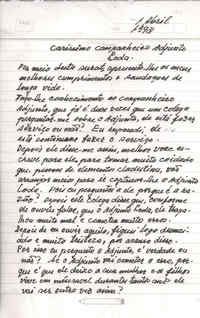 1 Abril
1998
Caríssimo companheiro Adjunto
Lada.
Por meio desta carta, apresento-lhe os meus
melhores cumprimentos e saudações de
longa vida.
conhecimento ao companheiro
Adjunto, que já é duas vezes que um colega
pergunta-me sobre o Adjunto, de está fazer
serviço ou não? Eu respondi, de
está continuar fazer o serviço.
Depois ele disse-me assim, melhor você es-
creve para ele, para tomar muito cuidado
que, pessoas de elementos clandestino, estão
arranjar meios para de capturar-lhe o Adjunto
Lada. Pois eu pergunto a ele porque é a ra-
zão? depois este colega disse que, conforme
de ouvir falar, que o Adjunto Lada, ele traba-
lhou muito mal e
Depois de eu ouvir aquilo, fiquei logo desani-
mado e muito tristeza, por acaso disso.
Por isso eu pergunto o Adjunto, é verdade ou
não? Se o Adjunto vai cometer o erro, por-
que é que ele deixa a sua mulher e os filhos
viver em miserável durante tanto anos ele
vai ser outra vez assim?